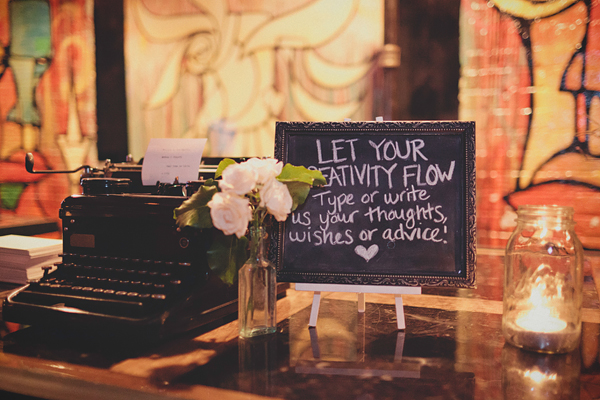 LET YOUR
EATIVITY FLOW
Type or write
us your thoughts,
wishes or advice!